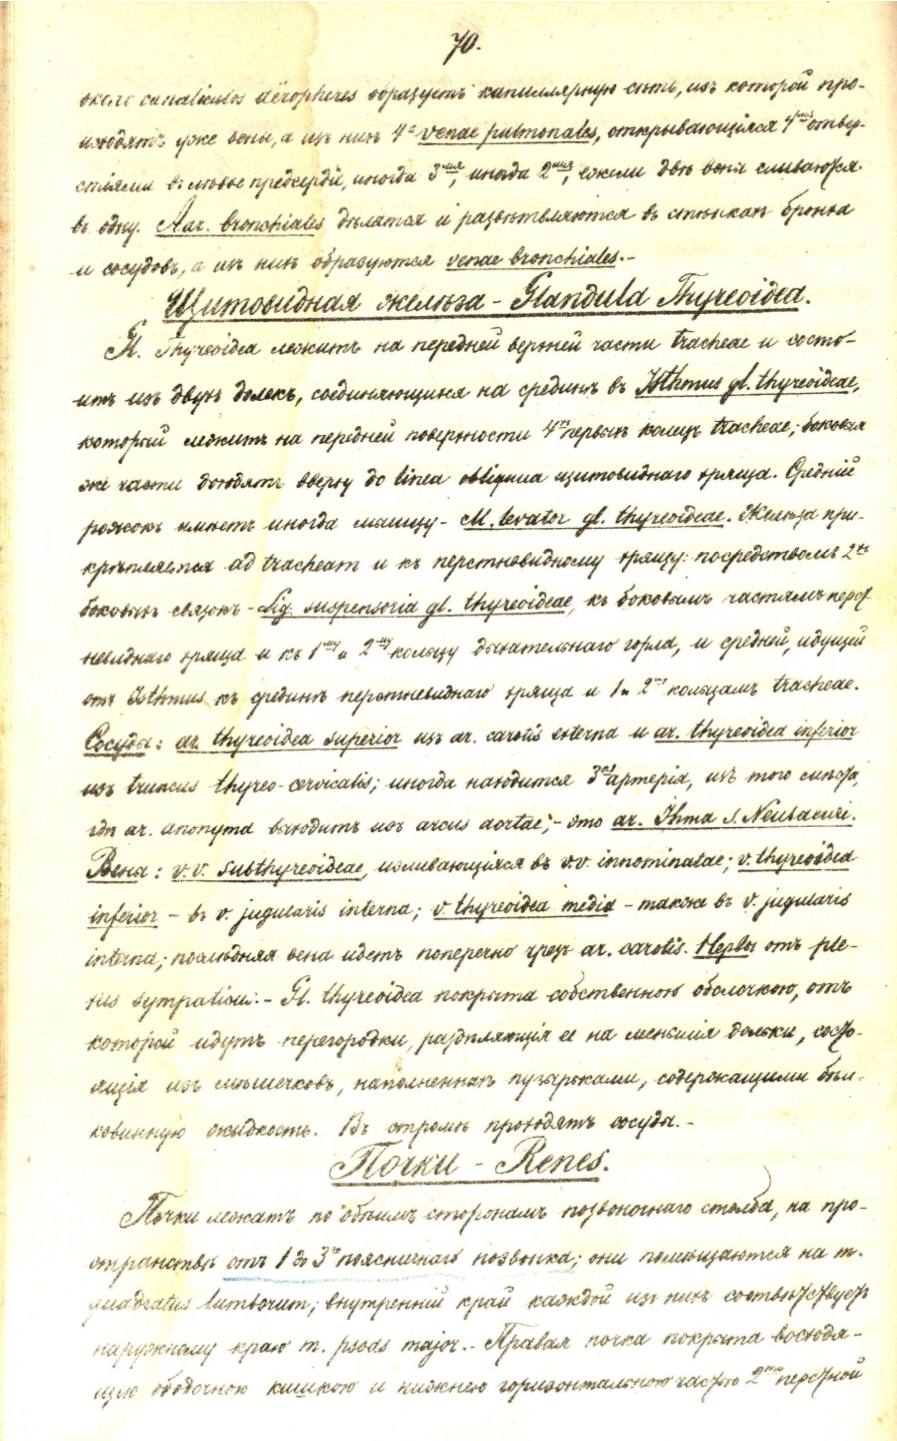 70.
около canaliculos aëropheres образуетъ капиллярную сѣть, изъ которой про-
изходятъ уже вены, а изъ нихъ 4ᵉ venae pulmonales, открывающіяся 4ᵐᵃ отвер-
стіями въ лѣвое предсердіе, иногда 3ᵐᵃ, иногда 2ᵐᵃ, ежели двѣ вены сливаются
въ одну. Aar. bronchiales дѣлятся и развѣтвляются въ стѣнкахъ бронха
и сосудовъ, а изъ нихъ образуются venae bronchiales.-
Щитовидная желѣза - Glandula Thyreoidea.
Gl. Thyreoidea лежитъ на передней верхней части tracheae и состо-
итъ изъ двухъ долекъ, соединяющихся на срединѣ въ Isthmus gl. thyreoideae,
который лежитъ на передней поверхности 4ᵉˣ первыхъ колецъ tracheae; боковыя
же части доходятъ вверху до linea obliqua щитовиднаго хряща. Средній
рожокъ имѣетъ иногда мышцу - M. levator gl. thyreoideae. Желѣза при-
крѣпляется ad tracheam и къ перстневидному хрящу: посредствомъ 2ᵘˣ
боковыхъ связокъ - Lig. suspensoria gl. thyreoideae, къ боковымъ частямъ перст-
невиднаго хряща и къ 1ᵐʸ и 2ᵐʸ кольцу дыхательнаго горла, и средней, идущей
отъ Isthmus къ срединѣ перстневиднаго хряща и 1 и 2ᵐʸ кольцамъ tracheae.
Сосуды: ar. thyreoidea superior изъ ar. carotis externa и ar. thyreoidea inferior
изъ truncus thyreo-cervicalis; иногда находится 3ᵃˣ артерія, изъ того мѣста,
гдѣ ar. anonyma выходитъ изъ arcus aortae; - это ar. Ihma s. Neubaueri.
Вены: v.v. subthyreoideae, изливающіяся въ v.v. innominatae; v. thyreoidea
inferior - въ v. jugularis interna; v. thyreoidea media - также въ v. jugularis
interna; послѣдняя вена идетъ поперечно чрезъ ar. carotis. Нервы отъ ple-
xus sympaticus.- Gl. thyreoidea покрыта собственною оболочкою, отъ
которой идутъ перегородки, раздѣляющія ее на меньшія дольки, состо-
ящія изъ мѣшечковъ, наполненныхъ пузырьками, содержащими бѣл-
ковинную жидкость. Въ стромѣ проходятъ сосуды.-
Почки - Renes.
Почки лежатъ по обѣимъ сторонамъ позвоночнаго столба, на про-
странствѣ отъ 1 до 3ᵍᵒ поясничнаго позвонка; они помѣщаются на m.
quadratus lumborum; внутренній край каждой изъ нихъ соотвѣтствуетъ
наружному краю m. psoas major.- Правая почка покрыта восходя-
щею ободочною кишкою и нижнею горизонтальною частью 2ᵐᵘ перстной